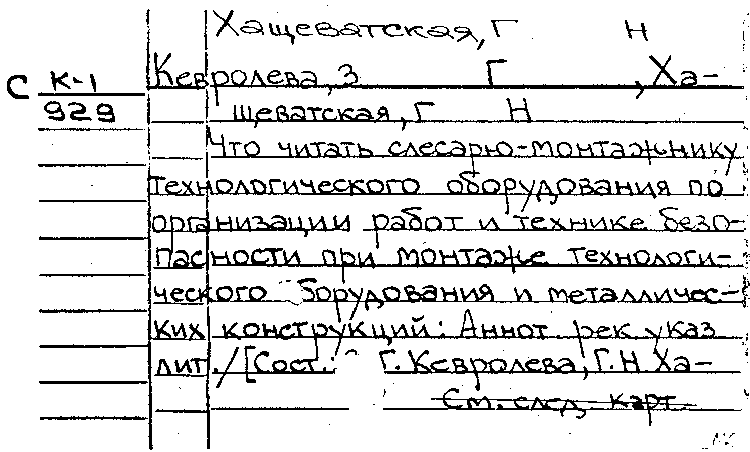 Хащеватская, Г Н
С К-1 Кевролева, З Г , Ха-
929 щеватская, Г Н
Что читать слесарю-монтажнику
технологического оборудования по
организации работ и технике безо-
пасности при монтаже технологи-
ческого борудования и металличес-
ких конструкций: Аннот. рек. указ
лит. /[Сост.: Г. Кевролева, Г. Н. Ха-
См. след. карт.